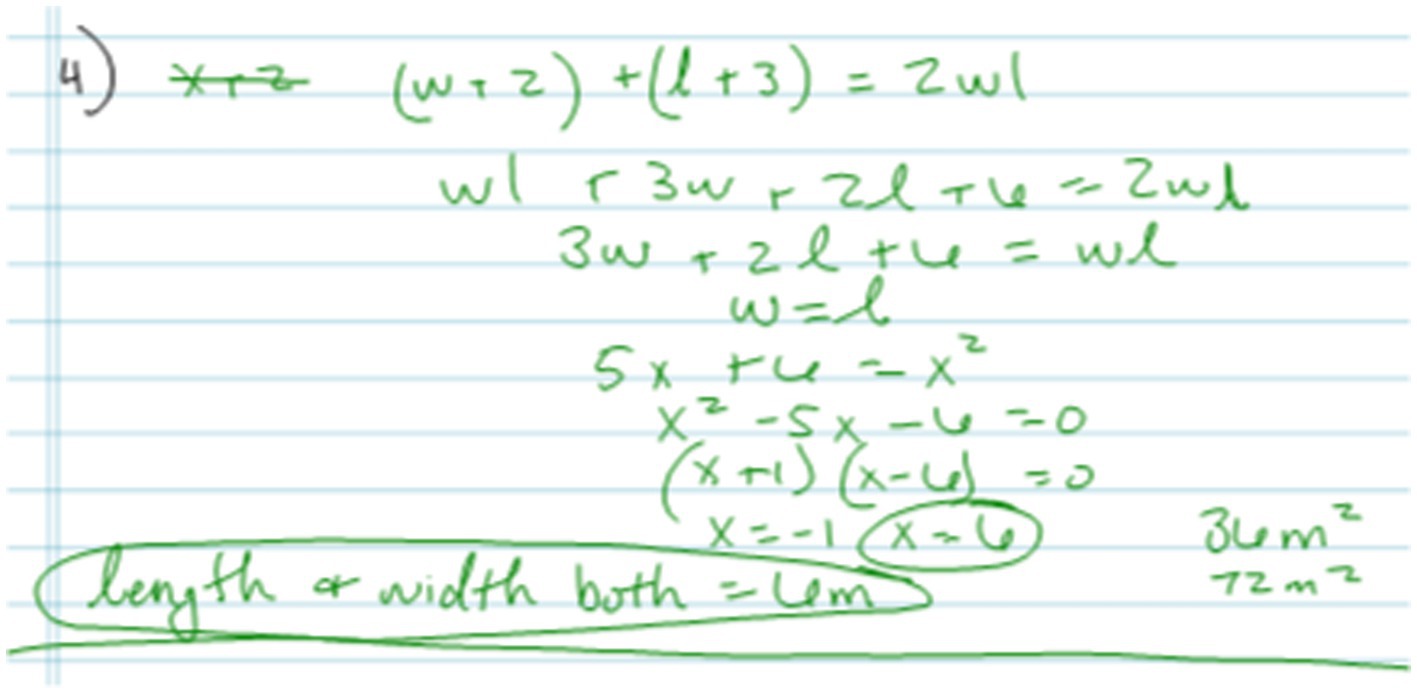 4) ~~x+2~~ (w+2) +(l+3) = 2wl
wl + 3w + 2l + 6 = 2wl
3w + 2l + 6 = wl
w = l
5x + 6 = x²
x² - 5x - 6 = 0
(x+1) (x-6) = 0
x = -1 x = 6
36m²
72m²
length + width both = 6m